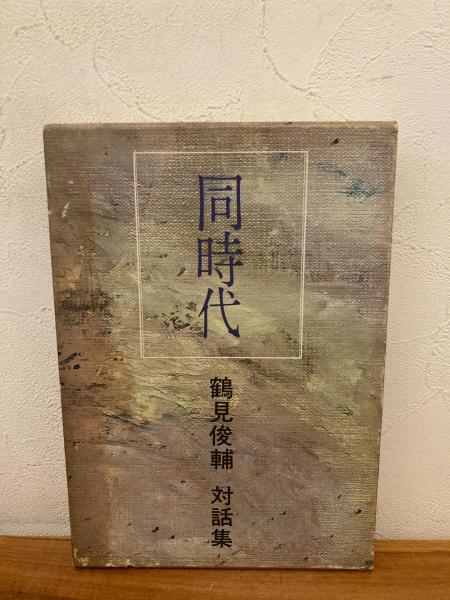 同時代
鶴見俊輔 対話集